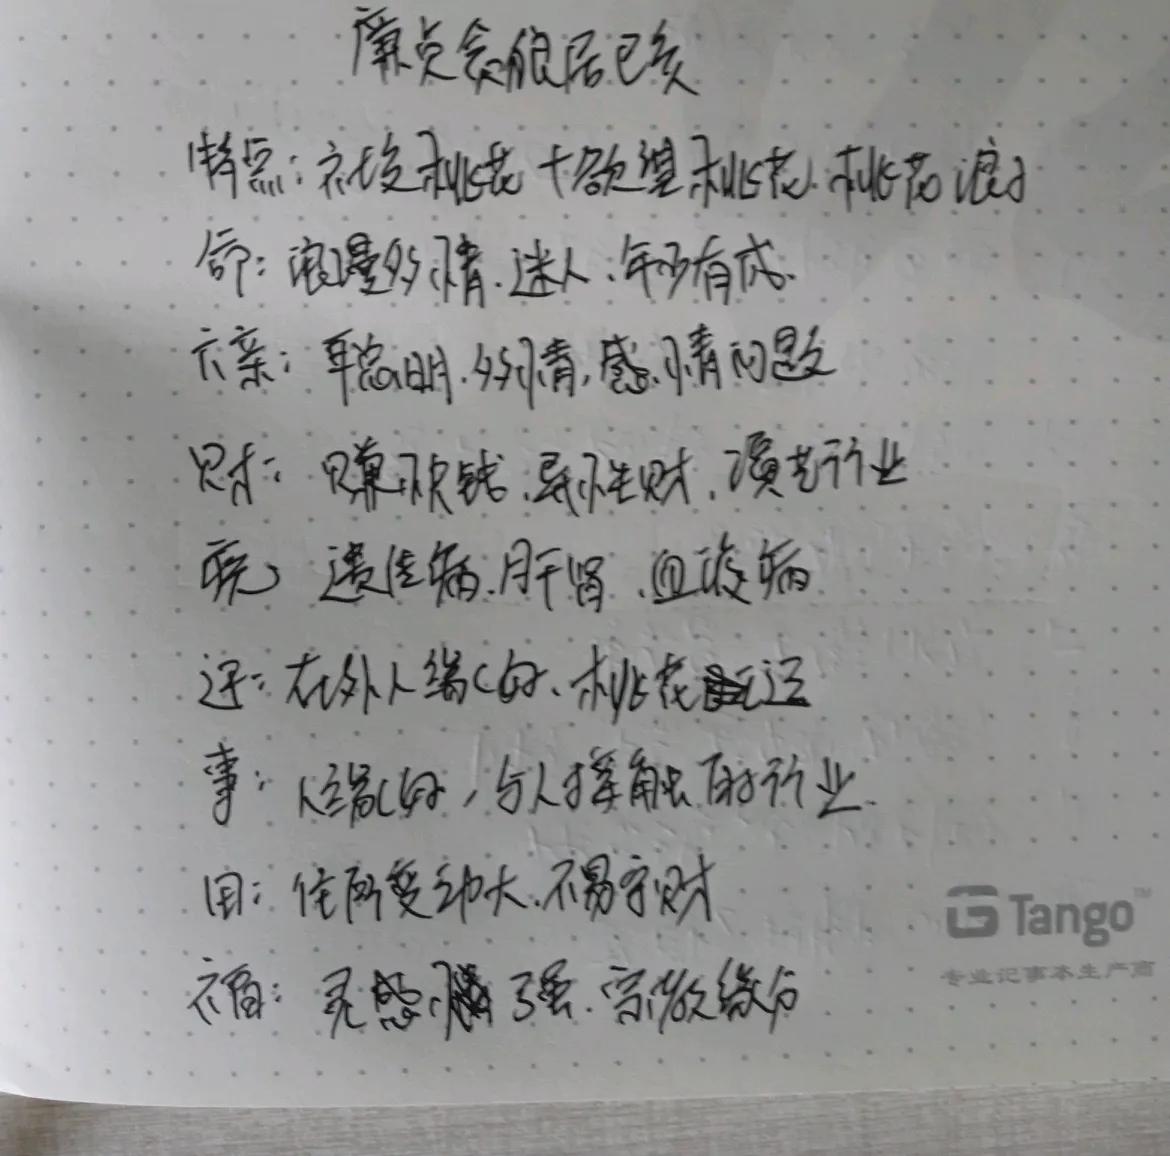 廉贞贪狼居巳亥
特点：社交桃花+欲望桃花.桃花浪子
命：浪漫多情.迷人.年少有成.
六亲：聪明.多情,感情问题
财：赚快钱.异性财.演艺行业
疾：遗传病.肝肾.血液病
迁：在外人缘好.桃花运
事：人缘好,与人接触的行业.
田：住所变动大.不易守财
福：灵感强.宗教缘分
Tango™
专业记事本生产商